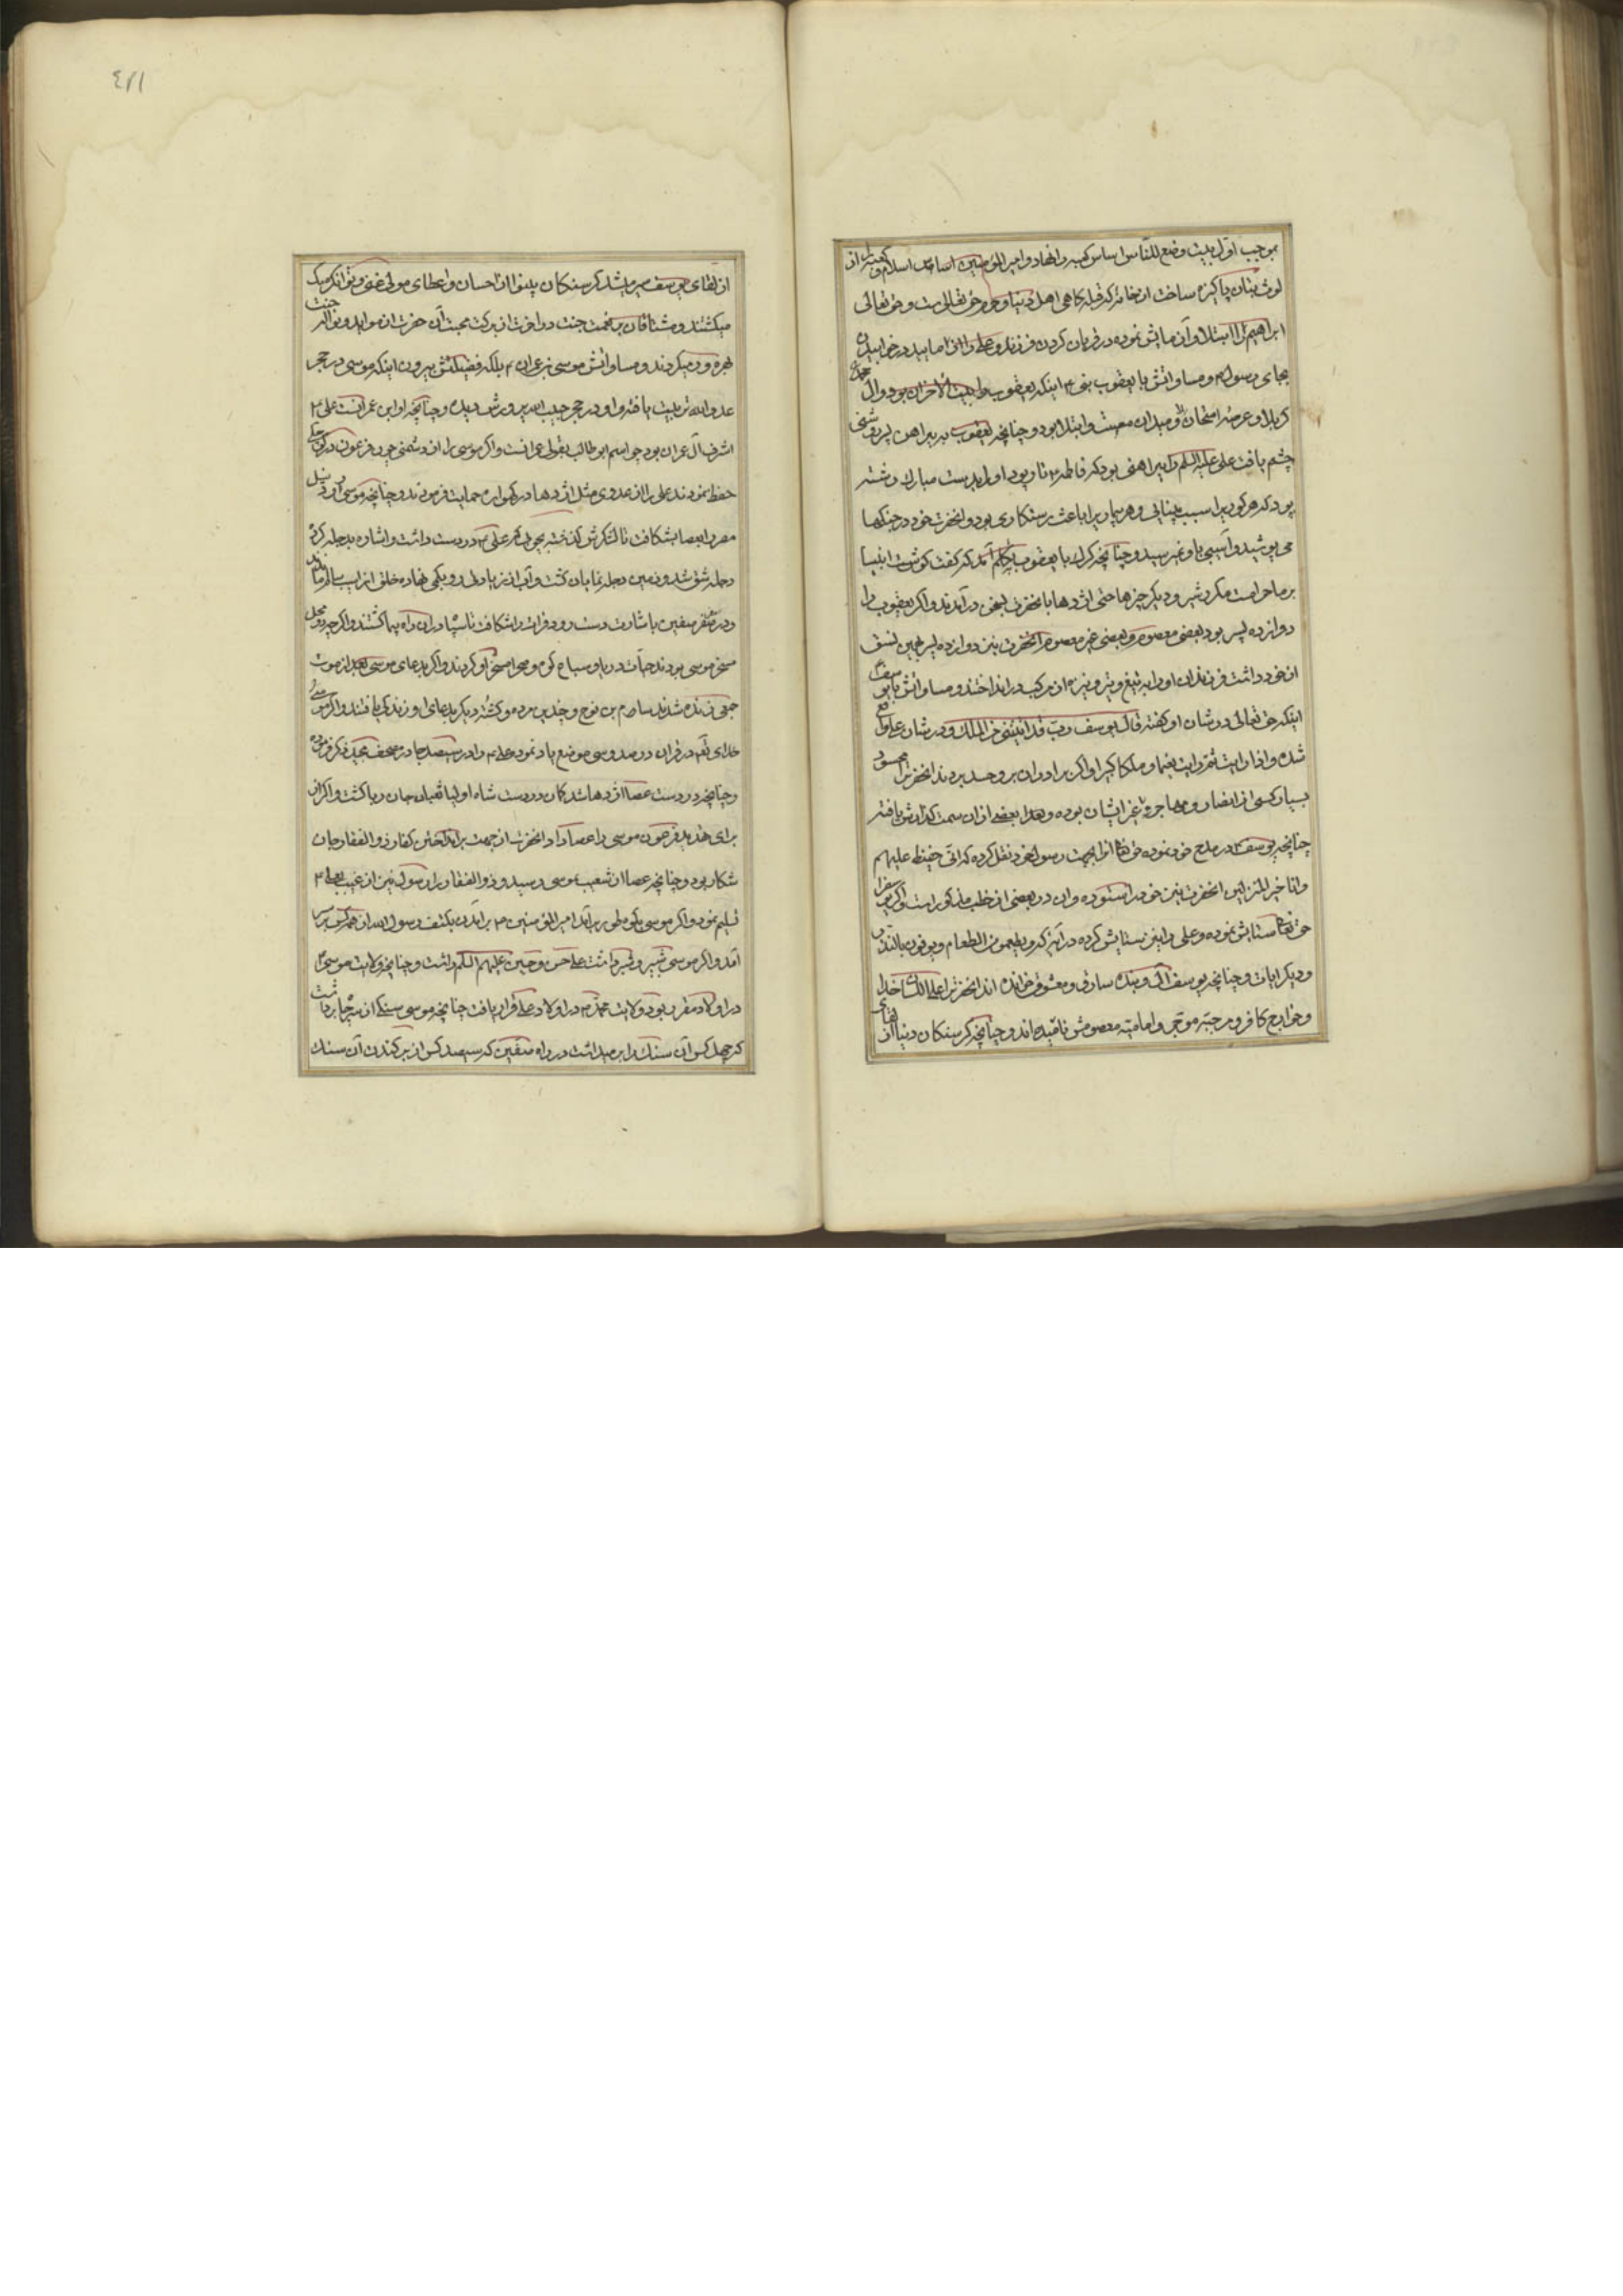 بموجب اول بیت وضع للناس اساس کعبه را نهاد و امیر المؤمنین اساس اسلام و کعبه را از
لوث بتان پاکیزه ساخت از خانه که قبله کاهی اهل دنیا و حق تعالی
ابراهیم را ابتلا و آزمایش نموده در قربان کردن فرزند و علی را در خوابیدن
بجای رسول و مساواتش با یعقوب نبی ۴ اینکه یعقوب را بیت الاحزان بود و آل محمد
کربلا و عرصه امتحان و میدان مصیبت و ابتلا بود و چنانچه یعقوب به پیراهن پسر روشنی
چشم یافت علی علیه السلم را پیراهنی بود که فاطمه تار و پود او را بدست مبارک رشته
بود که هر کور را سبب بینایی و هر بیمار را باعث رستکاری بود و انحضرت خود در جنکها
می پوشید و آسیبی باو نمیرسید و چنانچه کرک با یعقوب بتکلم آمد که گفت کوشت انبیا
بر ما حرامست مکرر شیر و دیکر چیزها حتی اژدها با نحضرت بسخن در آمدند و اکر یعقوب را
دوازده پسر بود بعضی معصوم و بعضی غیر معصوم انحضرت نیز دوازده پسر
از خود داشت فرزندان او را به تیغ و تیر و نیزه از مرکب در انداختند و مساواتش با یوسف
اینکه حق تعالی در شان او کفته قال یوسف رب قد اتیتنی من الملک و در شان علی واقع
شده و اذا رایت ثم رایت نعیما و ملکا کبیرا و اکر برادران بر وی حسد بردند انحضرت را محسود
بسیار کسی از انصار و مهاجر و غیر ایشان بوده و هذا بعضی از ان سمت کذارش یافته
چنانچه یوسف در مدح خود نموده حق تعالی انرا بجهت رسول خود نقل کرده که انی حفیظ علیم
و انا خیر المنزلین انحضرت نیز خود را ستوده و ان در بعضی از خطب مذکور است و اکر یوسف را
حق تعالی ستایش نموده و علی را نیز ستایش کرده در آیه کریمه و یطعمون الطعام و یوفون بالنذر
و دیکر ایات و چنانچه یوسف را کاهی بنده سارق و معشوق خوانده اند انحضرت را خدا
و خوارج کافر و مرجیه موخر و امامیه معصومش نامیده اند و چنانچه کرسنکان دنیا از لقای
از لقای یوسف سیر میشد کرسنکان بینوا از احسان و اعطای مولی غنی و توانکر میک
میکشتند و مشتاقان نعمت جنت در اخرت از برکت محبت آن حضرت از موائد و نوال جنت
بهره ور میکردند و مساواتش موسی بن عمران ۴ بلکه فضیلتش بیرون اینکه موسی در حجر
عدو الله تربیت یافته و او در حجر حبیب الله پرورش دیده و چنانچه او ابن عمرانست علی ۴
اشرف آل عمران بود چو اسم ابو طالب بقولی عمرانست و اکر موسی را از دشمنی چون فرعون در کودکی
حفظ نمودند علی را از عدوی مثل اژدها در کهواره حمایت فرمودند و چنانچه موسی رود نیل
مصر را بعصا بشکافت تا لشکرش کذشته علی ۴ در دست داشت و اشاره بدجله کرد
دجله شق شد و زمین دجله نمایان کشت و آب از زیادتی رو بکمی نهاده خلق از اب سالم ماندند
و در سفر صفین باشارت دست رود فرات را شکافت تا سپاه در ان راه پیما کشتند و اکر
مسخر موسی بودند حیات دریا و سباع کوه و صحرا مسخر او کردند و اکر بدعای موسی بعد از موت
جمعی زنده شدند سام بن نوح و چندین مرده و کشته دیکر بدعای او زندکی یافتند و اکر موسی را
خدای تعالی در قران در صد و سی موضع یاد نموده علی ۴ را در سیصد جا در مصحف مجید ذکر فرموده
و چنانچه در دست عصا اژدها شد کمان در دست شاه اولیا ثعبان جان ربا کشت و اکر از
برای تهدید فرعون موسی را عصا داد انحضرت از جهت بر انداختن کفار ذو الفقار جان
شکار بود و چنانچه عصا از شعیب بموسی رسید و ذو الفقار را رسول نیز از غیب بعلی ۴
تسلیم نمود و اکر موسی بکوه طور بر آمد امیر المؤمنین ۴ بر آمدن بکتف رسول الله از همه کس بر سر
آمد و اکر موسی شبیر و شبر داشت علی حسن و حسین علیهم السلم داشت و چنانچه ولایت موسی
در اولاد مقرر بود ولایت محمد ۴ در اولاد علی قرار یافت چنانچه موسی سنکی از سر چاه برداشت
که چهل کس آن سنک را بر میداشت در راه صفین که سیصد کس از بر کندن آن سنک